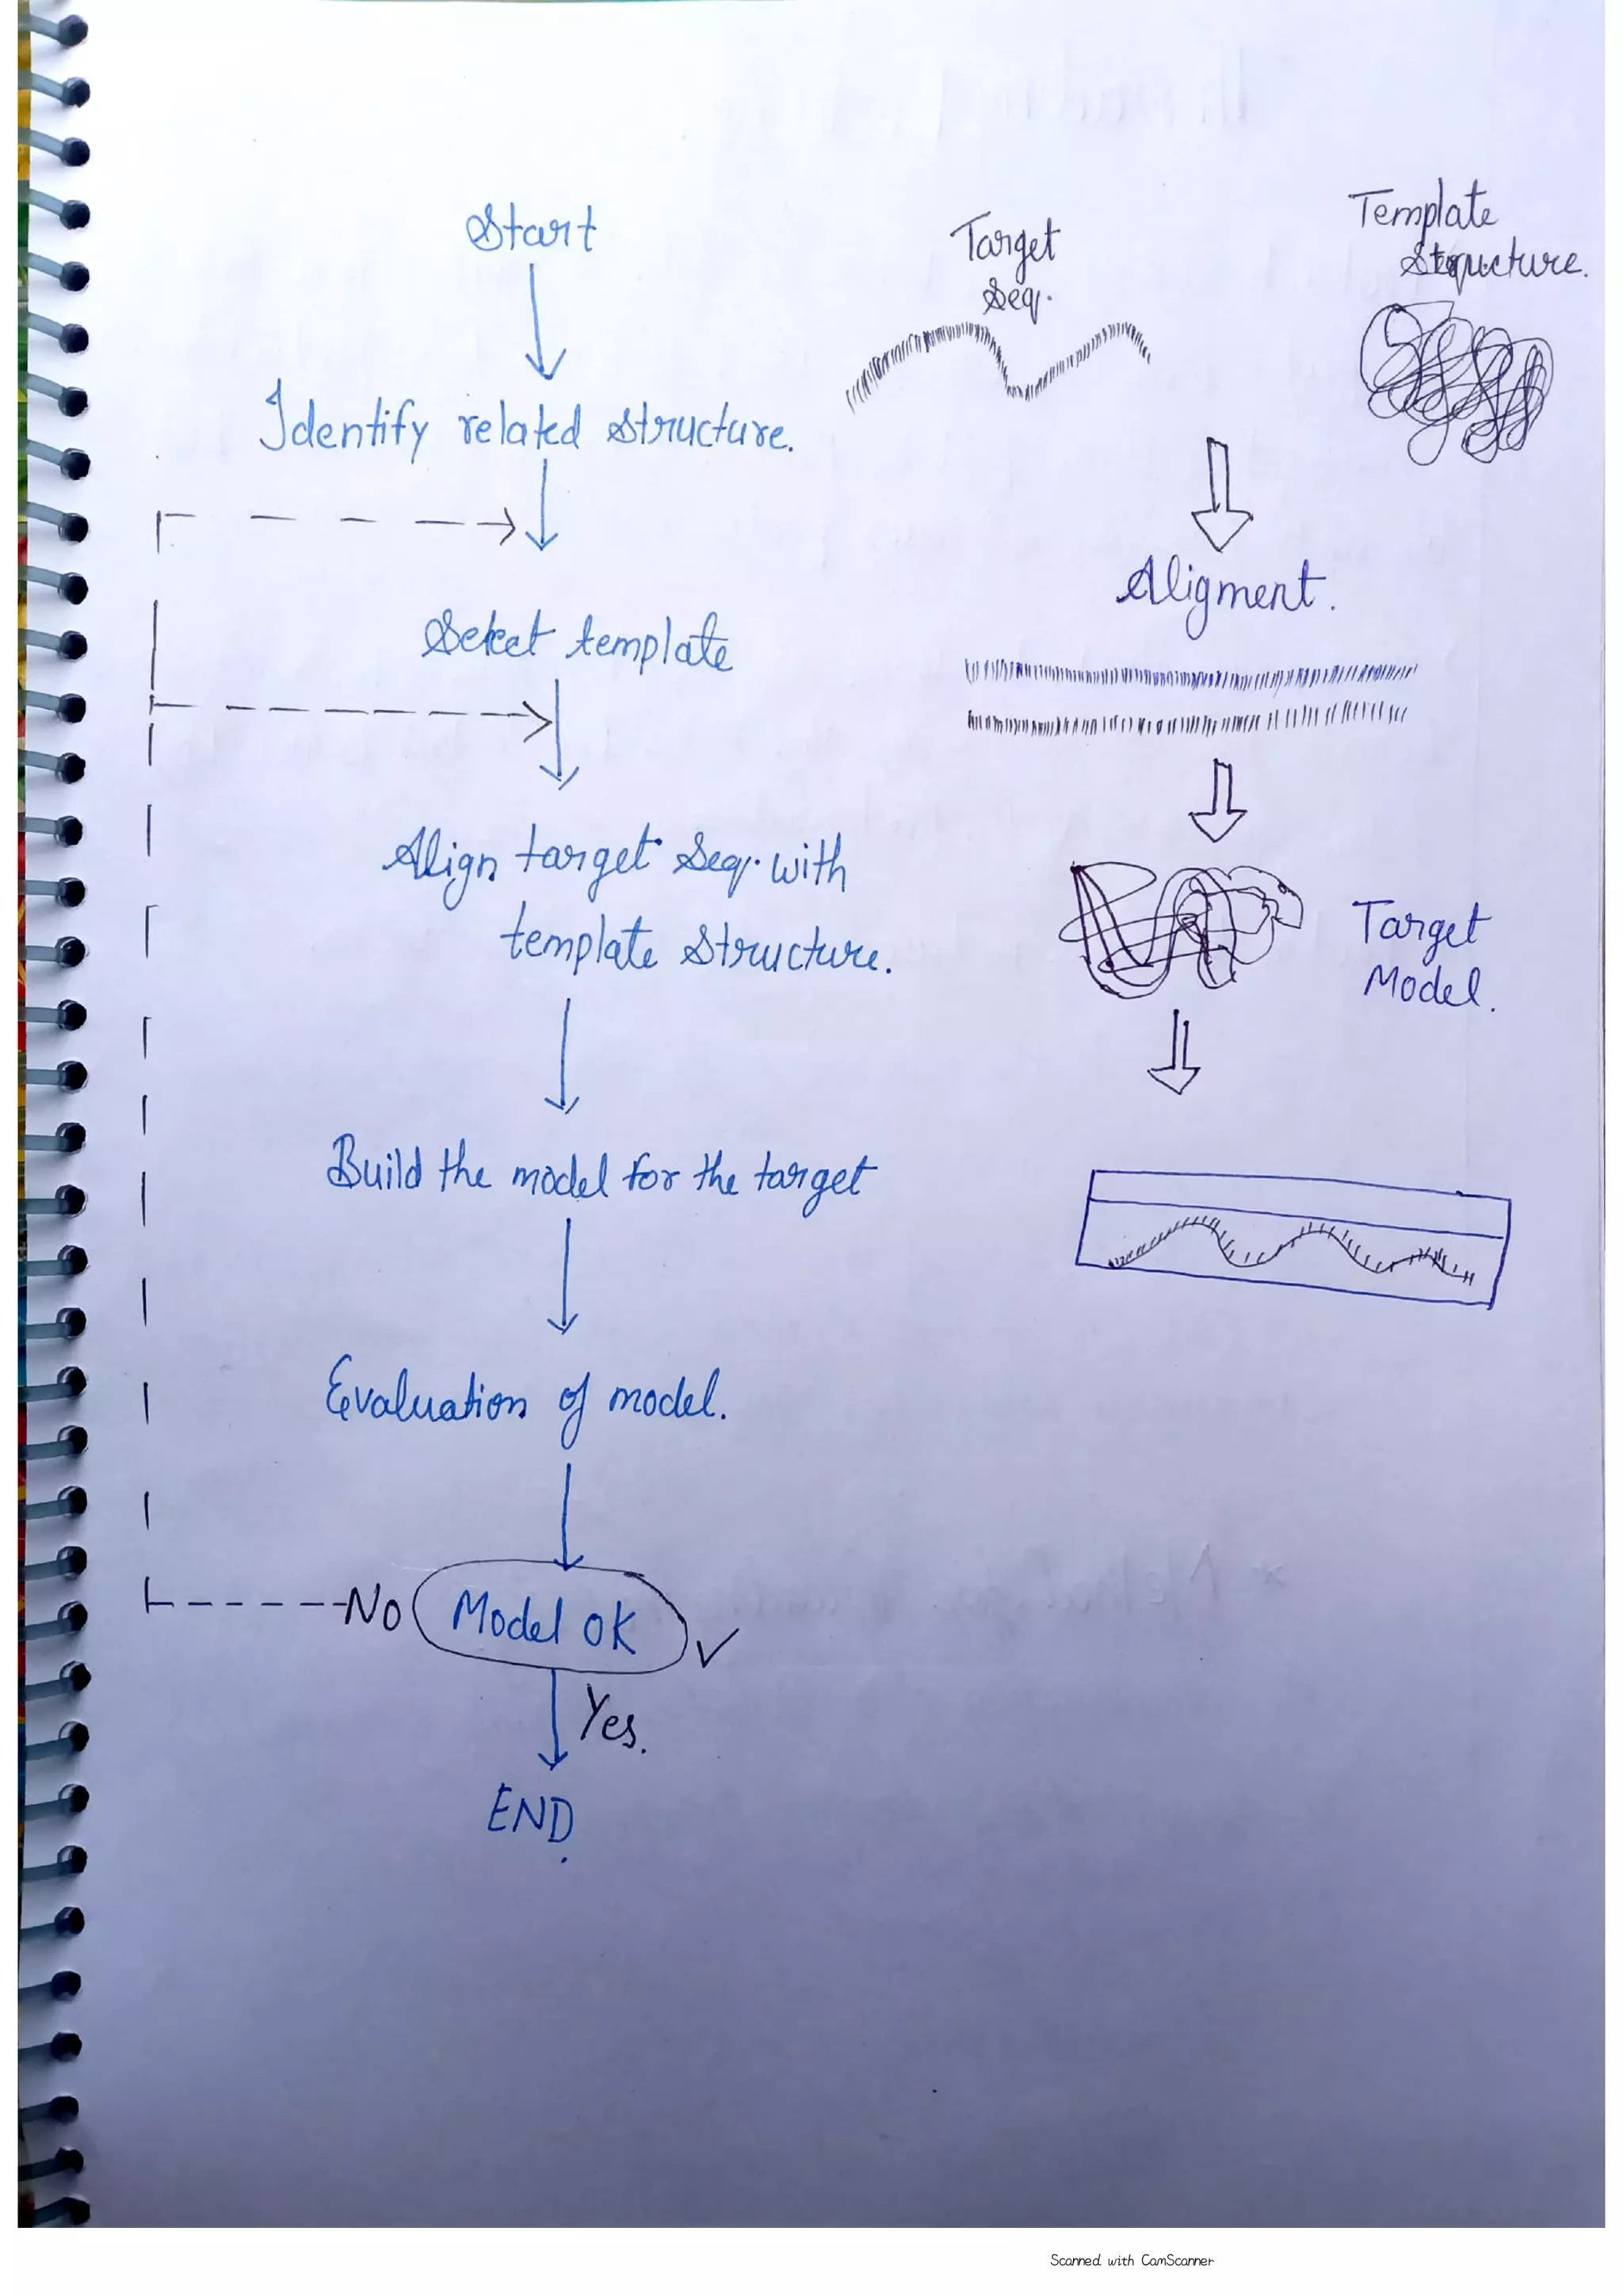 Start
Identify related structure.
Select template
Align target Seq. with
template structure.
Build the model for the target
Evaluation of model.
No
Model OK
Yes.
END
Target
Seq.
Template
Structure.
Aligment.
Target
Model.
Scanned with CamScanner